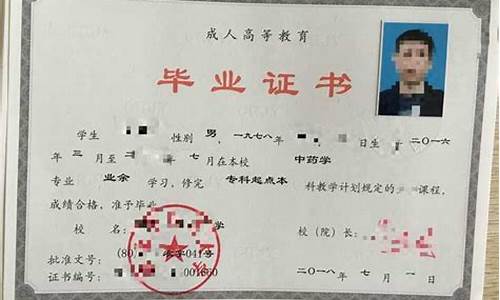 成人高等教育
毕业证书
学生 性别 男，一九七八年 日生 二〇一六
年 三 月至 二 年 七 月在本校 中药学
专业 业余 学习，修完 专科起点本 科教学计划规定的 课程，
成绩合格，准予毕业
校 名： 学 校（院）长：
批准文号： (80) 字041号
证书编号： 001660 二〇一八年 七 月 一 日